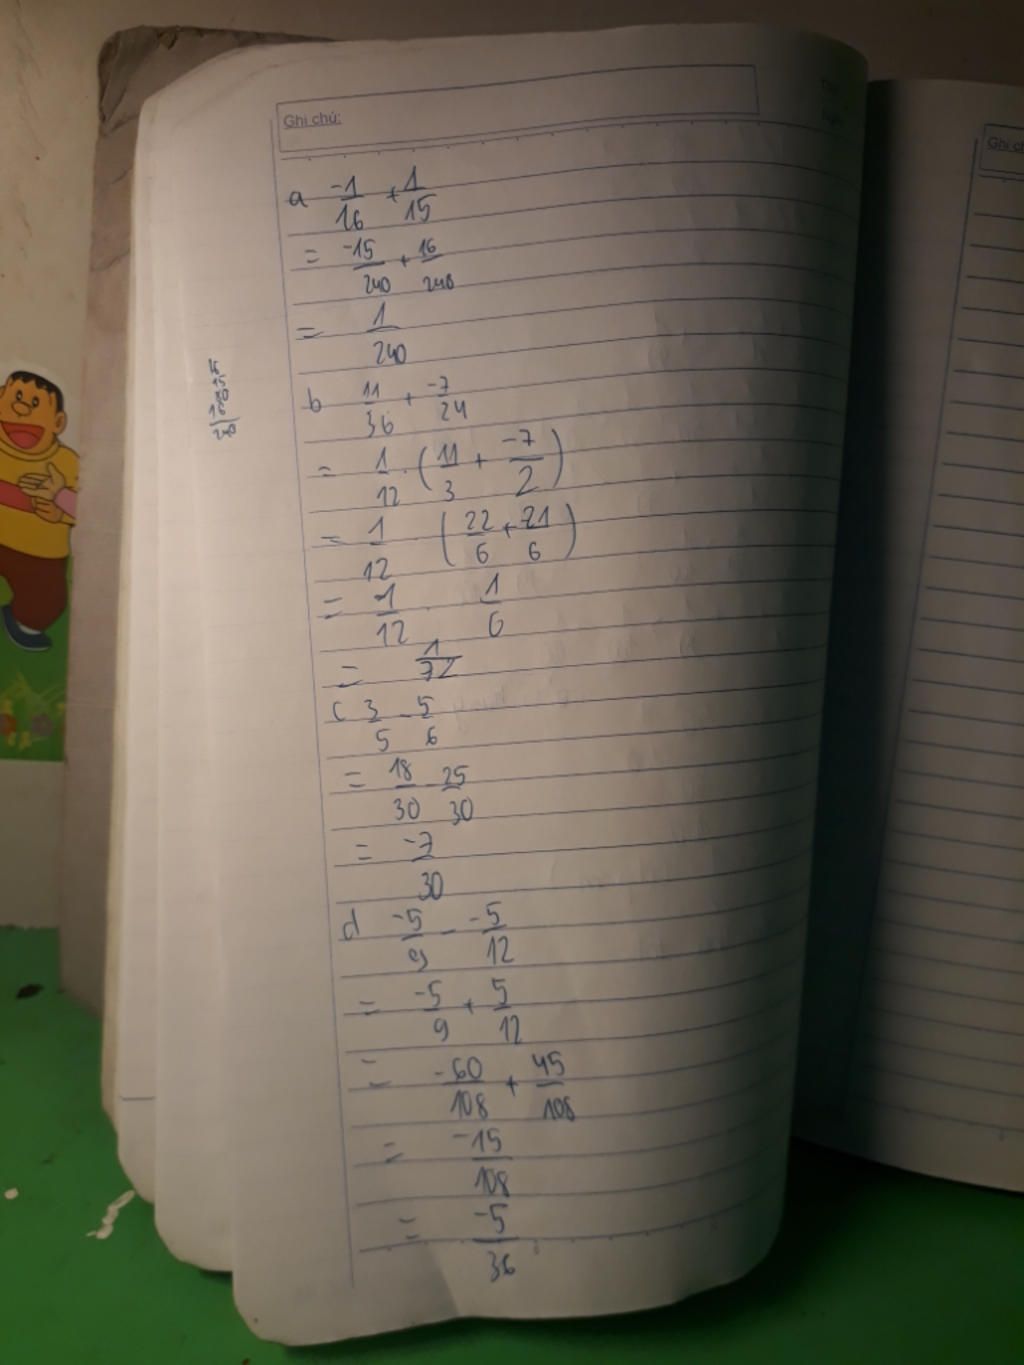 Ghi chú:
a -1/16 + 1/15
= -15/240 + 16/240
= 1/240
b 11/36 + -7/24
= 1/12 . (11/3 + -7/2)
= 1/12 . (22/6 + -21/6)
= 1/12 . 1/6
= 1/72
c 3/5 - 5/6
= 18/30 - 25/30
= -7/30
d -5/9 - -5/12
= -5/9 + 5/12
= -60/108 + 45/108
= -15/108
= -5/36
16
15
80
16
240
Ghi ch